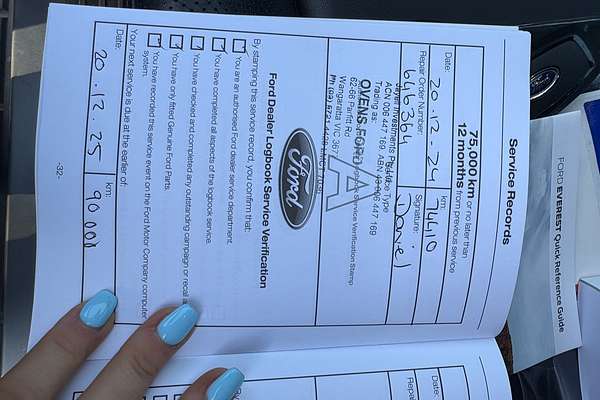 Service Records
75,000 km or no later than
12 months from previous service
Date: 20-12-24
km: 74410
Repair Order Number:
646354
Signature:
Daniel
Service Type
A
Dealer Logbook Service Verification Stamp
ACN 006 447 169, ABN 13 006 447 169
Trading as:
OVENS FORD
62-68 Parfitt Rd
Wangaratta VIC 367
Ford
Ford Dealer Logbook Service Verification
By stamping this service record, you confirm that:
You are an authorised Ford dealer service department.
You have completed all aspects of the logbook service.
You have checked and completed any outstanding campaign or recal
You have only fitted Genuine Ford Parts.
You have recorded this service event on the Ford Motor Company computer
system.
Your next service is due at the earlier of:
Date: 20.12.25
km: 90 000
-32-
Date:
Repai
FORD EVEREST Quick Reference Guide
Ford